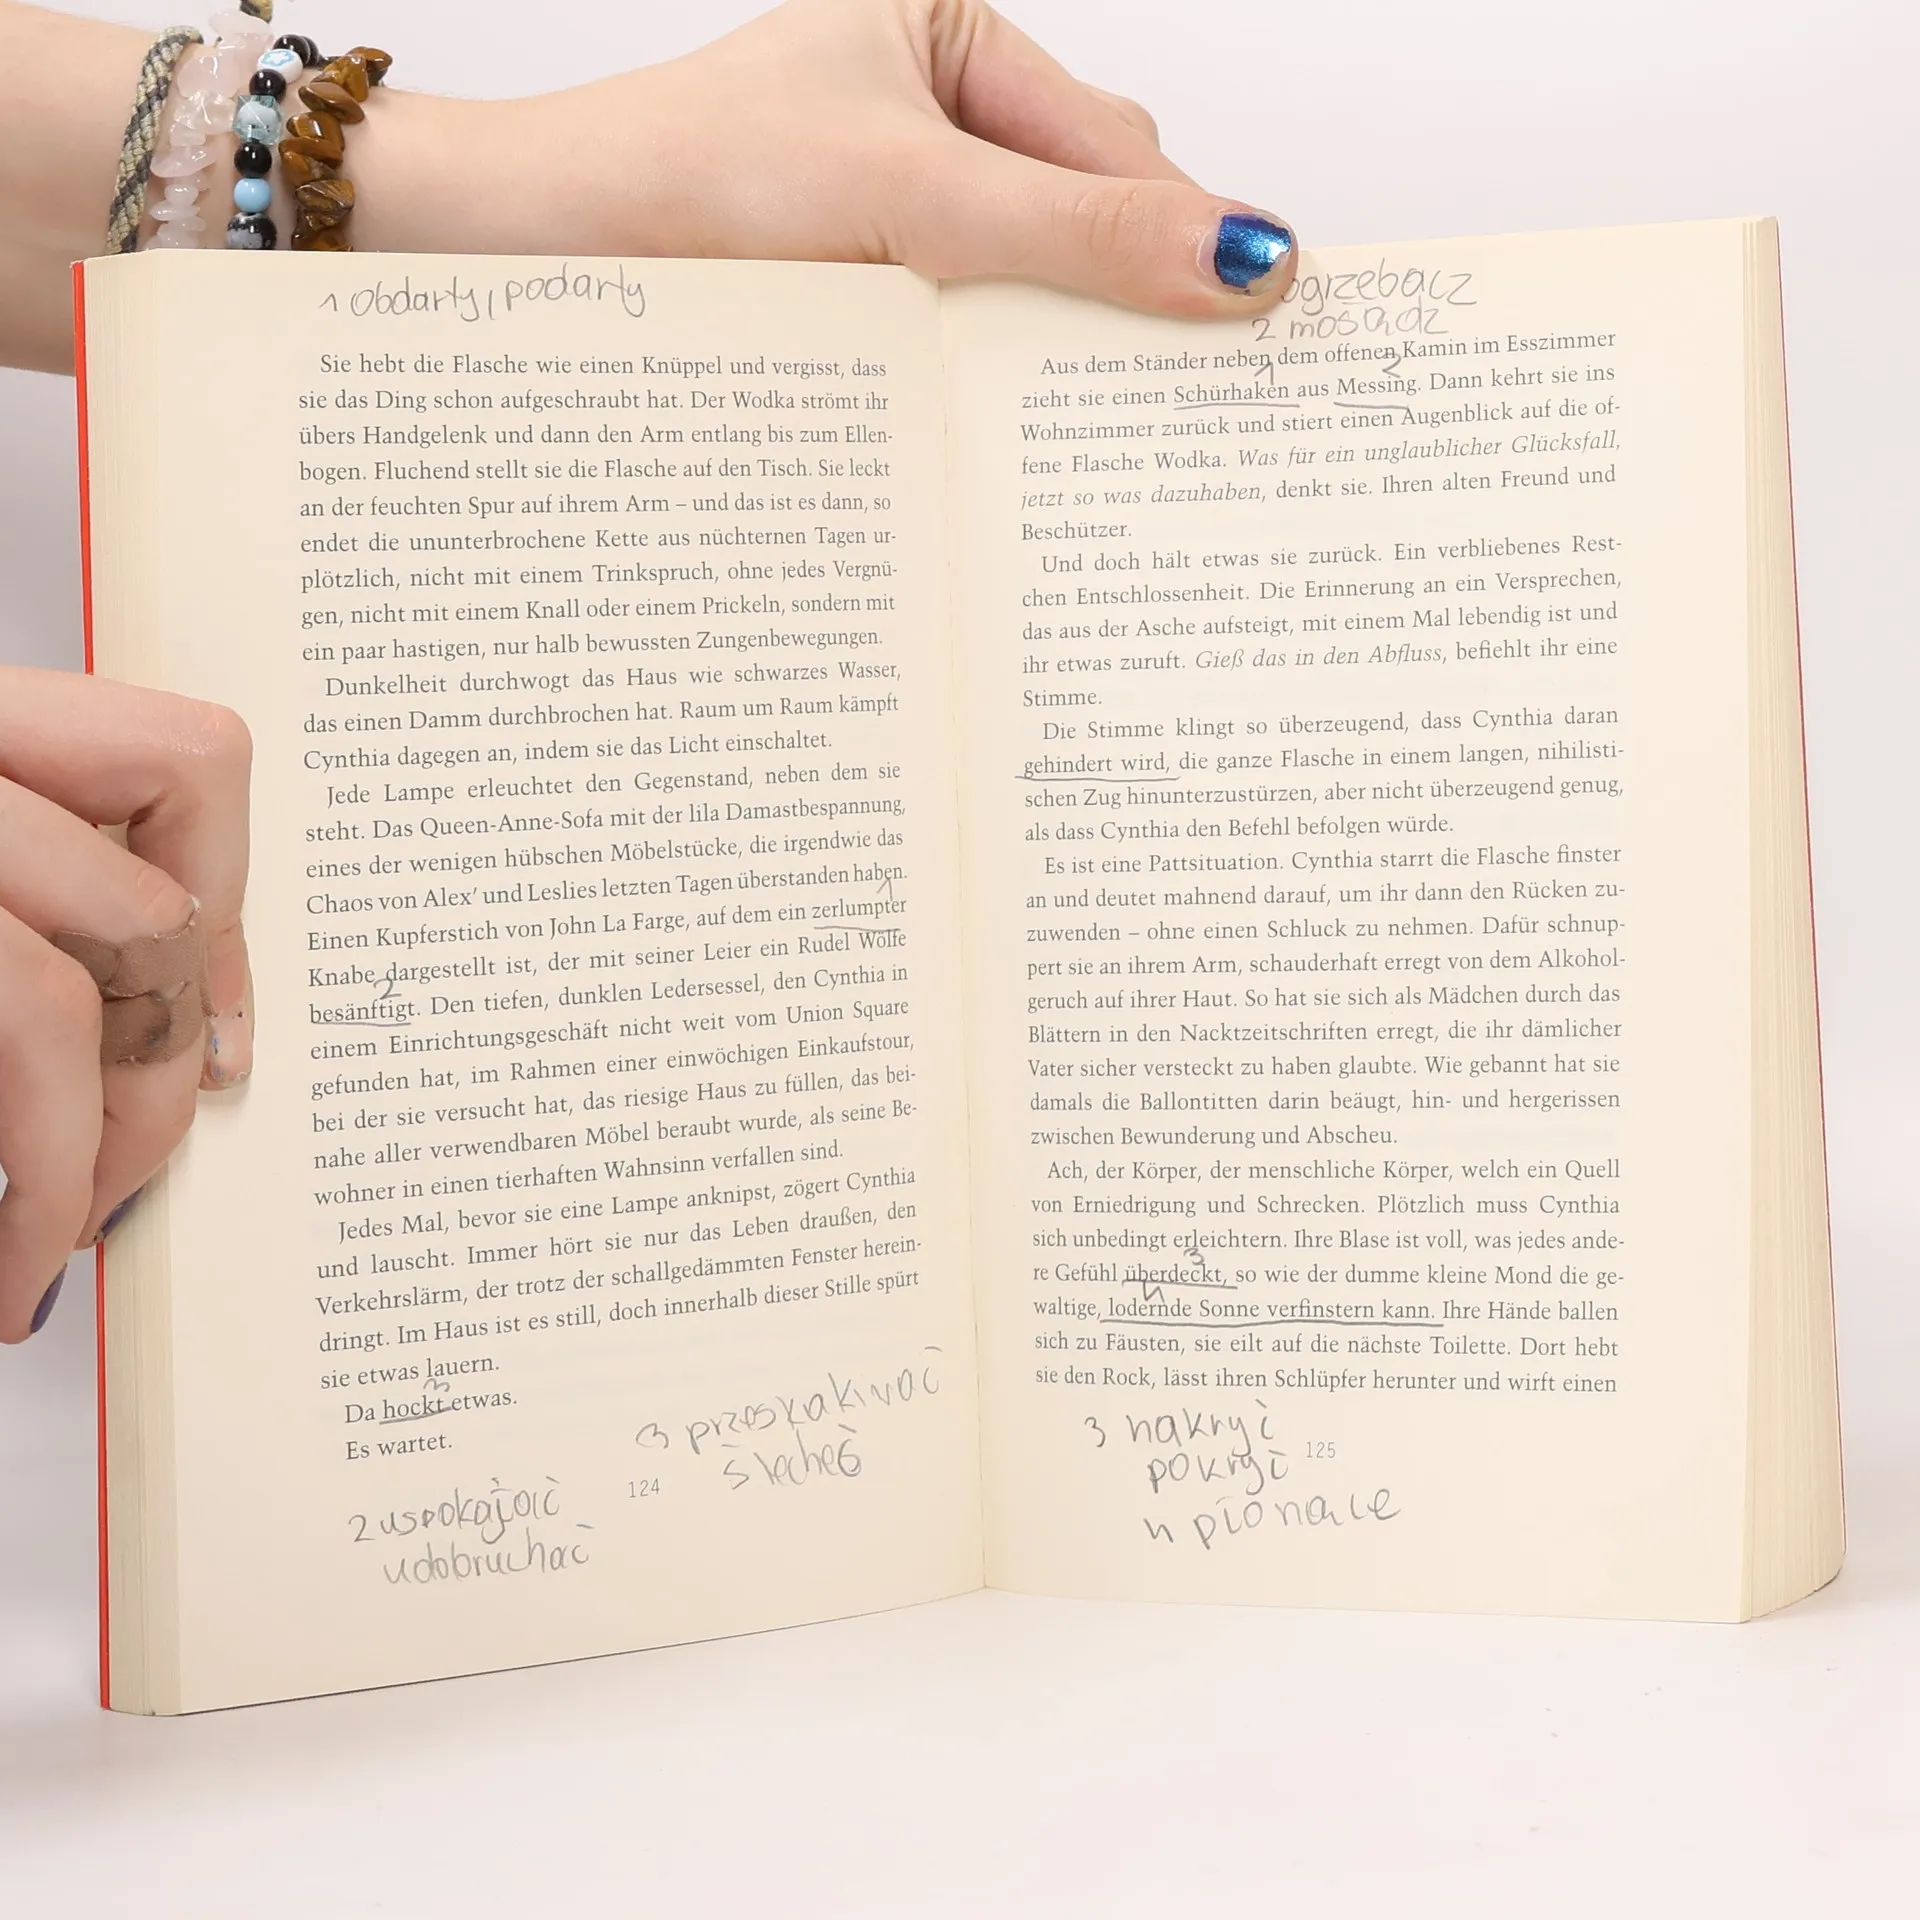 1 Obdarty, podarty
Sie hebt die Flasche wie einen Knüppel und vergisst, dass
sie das Ding schon aufgeschraubt hat. Der Wodka strömt ihr
übers Handgelenk und dann den Arm entlang bis zum Ellen-
bogen. Fluchend stellt sie die Flasche auf den Tisch. Sie leckt
an der feuchten Spur auf ihrem Arm – und das ist es dann, so
endet die ununterbrochene Kette aus nüchternen Tagen ur-
plötzlich, nicht mit einem Trinkspruch, ohne jedes Vergnü-
gen, nicht mit einem Knall oder einem Prickeln, sondern mit
ein paar hastigen, nur halb bewussten Zungenbewegungen.
Dunkelheit durchwogt das Haus wie schwarzes Wasser,
das einen Damm durchbrochen hat. Raum um Raum kämpft
Cynthia dagegen an, indem sie das Licht einschaltet.
Jede Lampe erleuchtet den Gegenstand, neben dem sie
steht. Das Queen-Anne-Sofa mit der lila Damastbespannung,
eines der wenigen hübschen Möbelstücke, die irgendwie das
Chaos von Alex' und Leslies letzten Tagen überstanden haben.
1
Einen Kupferstich von John La Farge, auf dem ein zerlumpter
Knabe dargestellt ist, der mit seiner Leier ein Rudel Wölfe
2
besänftigt. Den tiefen, dunklen Ledersessel, den Cynthia in
einem Einrichtungsgeschäft nicht weit vom Union Square
gefunden hat, im Rahmen einer einwöchigen Einkaufstour,
bei der sie versucht hat, das riesige Haus zu füllen, das bei-
nahe aller verwendbaren Möbel beraubt wurde, als seine Be-
wohner in einen tierhaften Wahnsinn verfallen sind.
Jedes Mal, bevor sie eine Lampe anknipst, zögert Cynthia
und lauscht. Immer hört sie nur das Leben draußen, den
Verkehrslärm, der trotz der schallgedämmten Fenster herein-
dringt. Im Haus ist es still, doch innerhalb dieser Stille spürt
sie etwas lauern.
3
Da hockt etwas.
Es wartet.
3 przeskakiwać
ślecheć
124
2 uspokajać
udobruchać
ogrzebacz
2 mosądz
Aus dem Ständer neben dem offenen Kamin im Esszimmer
1 2
zieht sie einen Schürhaken aus Messing. Dann kehrt sie ins
Wohnzimmer zurück und stiert einen Augenblick auf die of-
fene Flasche Wodka. Was für ein unglaublicher Glücksfall,
jetzt so was dazuhaben, denkt sie. Ihren alten Freund und
Beschützer.
Und doch hält etwas sie zurück. Ein verbliebenes Rest-
chen Entschlossenheit. Die Erinnerung an ein Versprechen,
das aus der Asche aufsteigt, mit einem Mal lebendig ist und
ihr etwas zuruft. Gieß das in den Abfluss, befiehlt ihr eine
Stimme.
Die Stimme klingt so überzeugend, dass Cynthia daran
gehindert wird, die ganze Flasche in einem langen, nihilisti-
schen Zug hinunterzustürzen, aber nicht überzeugend genug,
als dass Cynthia den Befehl befolgen würde.
Es ist eine Pattsituation. Cynthia starrt die Flasche finster
an und deutet mahnend darauf, um ihr dann den Rücken zu-
zuwenden – ohne einen Schluck zu nehmen. Dafür schnup-
pert sie an ihrem Arm, schauderhaft erregt von dem Alkohol-
geruch auf ihrer Haut. So hat sie sich als Mädchen durch das
Blättern in den Nacktzeitschriften erregt, die ihr dämlicher
Vater sicher versteckt zu haben glaubte. Wie gebannt hat sie
damals die Ballontitten darin beäugt, hin- und hergerissen
zwischen Bewunderung und Abscheu.
Ach, der Körper, der menschliche Körper, welch ein Quell
von Erniedrigung und Schrecken. Plötzlich muss Cynthia
sich unbedingt erleichtern. Ihre Blase ist voll, was jedes ande-
3
re Gefühl überdeckt, so wie der dumme kleine Mond die ge-
4
waltige, lodernde Sonne verfinstern kann. Ihre Hände ballen
sich zu Fäusten, sie eilt auf die nächste Toilette. Dort hebt
sie den Rock, lässt ihren Schlüpfer herunter und wirft einen
3 nakryć
pokryć
125
4 płonące